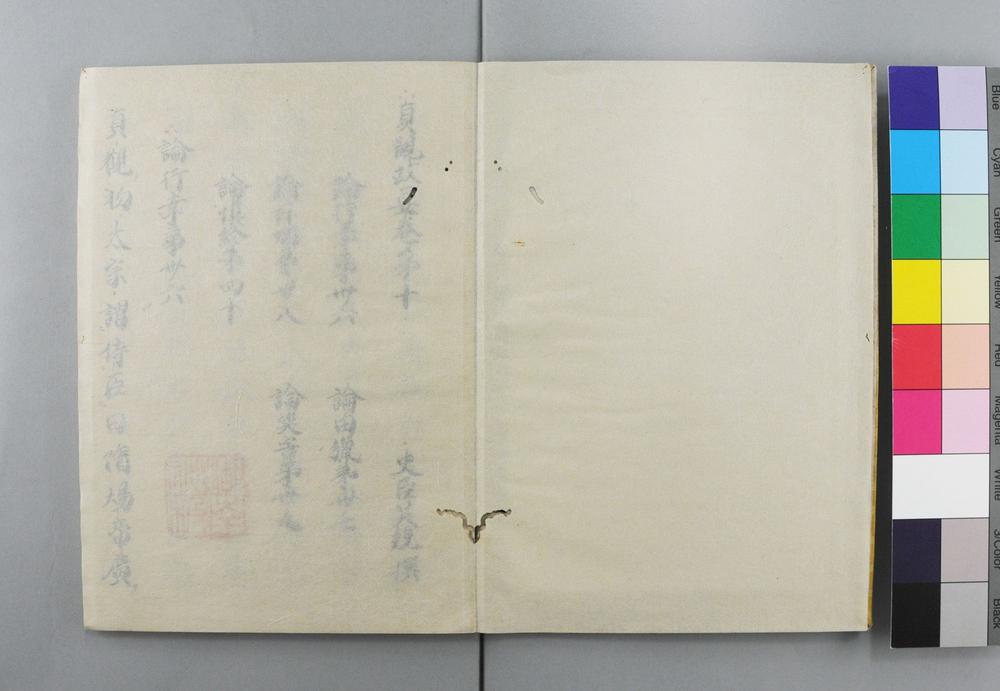 貞観政要巻第十
史臣呉兢撰
論行幸第卅六
論田猟第卅七
論祥瑞第卅八
論災異第卅九
論慎終第四十
論行幸第卅六
貞観初太宗謂侍臣曰隋煬帝廣
Blue
Cyan
Green
Yellow
Red
Magenta
White
3/Color
Black